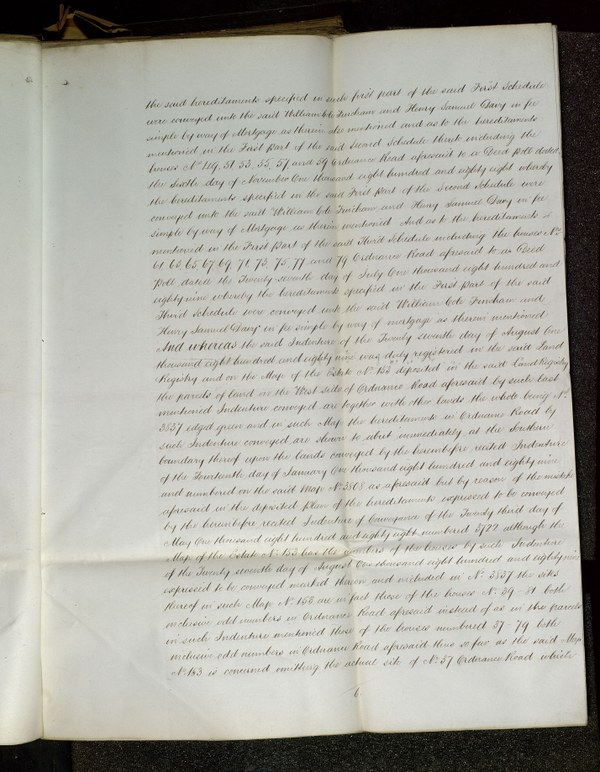 the said hereditaments specified in such first part of the said First Schedule
were conveyed unto the said William Cole Fincham and Henry Samuel Davy in fee
simple by way of Mortgage as therein also mentioned and as to the hereditaments
mentioned in the First part of the said Second Schedule thereto including the
houses Nos 49, 51, 53, 55, 57 and 59 Ordnance Road aforesaid to a Deed Poll dated
the sixth day of November One thousand eight hundred and eighty eight whereby
the hereditaments specified in the said First part of the Second Schedule were
conveyed unto the said William Cole Fincham and Henry Samuel Davy in fee
simple by way of Mortgage as therein mentioned And as to the hereditaments
mentioned in the First part of the said Third Schedule including the houses Nos
61, 63, 65, 67, 69, 71, 73, 75, 77 and 79 Ordnance Road aforesaid to a Deed
Poll dated the Twenty seventh day of July One thousand eight hundred and
eighty nine whereby the hereditaments specified in the First part of the said
Third Schedule were conveyed unto the said William Cole Fincham and
Henry Samuel Davy in fee simple by way of mortgage as therein mentioned
And whereas the said Indenture of the Twenty seventh day of August One
thousand eight hundred and eighty nine was duly registered in the said Land
Registry and on the Map of the Estate No 153 deposited in the said Land Registry
the parcels of land on the West side of Ordnance Road aforesaid by such last
mentioned Indenture conveyed are together with other lands the whole being No
3837 edged green and in such Map the hereditaments in Ordnance Road by
such Indenture conveyed are shewn to abut immediately at the Southern
boundary thereof upon the lands conveyed by the hereinbefore recited Indenture
of the Fourteenth day of January One thousand eight hundred and eighty nine
and numbered on the said Map No 3808 as aforesaid but by reason of the mistake
aforesaid in the deposited plan of the hereditaments expressed to be conveyed
by the hereinbefore recited Indenture of Conveyance of the Twenty third day of
May One thousand eight hundred and eighty eight numbered 3722 although the
Map of the Estate No 153 has the numbers of the houses by such Indenture
of the Twenty seventh day of August One thousand eight hundred and eighty nine
expressed to be conveyed marked thereon and included in No 3837 the sites
thereof in such Map No 153 are in fact those of the houses No 39 - 81 both
inclusive odd numbers in Ordnance Road aforesaid instead of as in the parcels
in such Indenture mentioned those of the houses numbered 37 - 79 both
inclusive odd numbers in Ordnance Road aforesaid thus so far as the said Map
No 153 is concerned omitting the actual site of No 37 Ordnance Road which
6